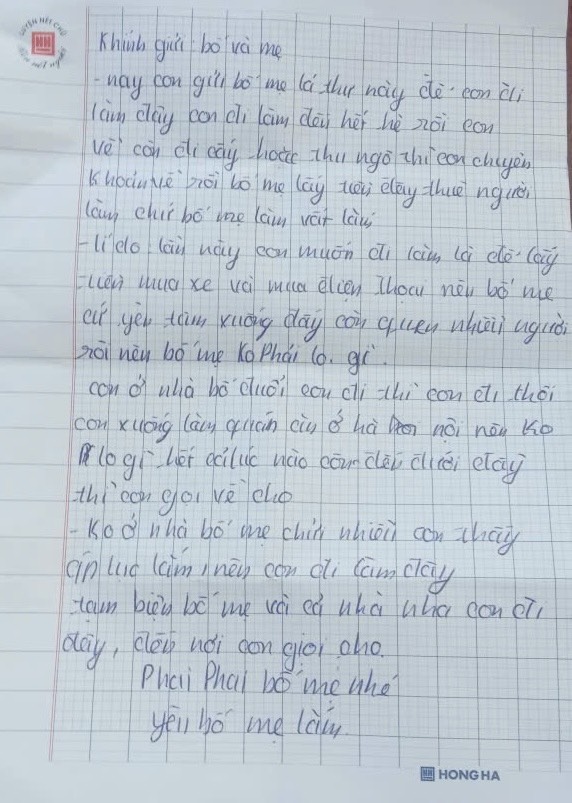 Khính gửi bố và mẹ
- nay con gửi bố mẹ lá thư này để con đi
làm đây con đi làm đến hết hè rồi con
về còn đi cấy hoặc thu ngô thì con chuyển
Khoản về rồi bố mẹ lấy tiền đấy thuê người
làm chứ bố mẹ làm vất lắm
- lí do lần này con muốn đi làm là để lấy
tiền mua xe và mua điện thoại nên bố mẹ
cứ yên tâm xuống đấy còn quen nhiều người
rồi nên bố mẹ ko Phải lo. gì.
con ở nhà bố đuổi con đi thì con đi thôi
con xuống làm quán ăn ở hà nội nên ko
lo gì hết lúc nào con đến dưới đấy
thì con gọi về cho
- Ko ở nhà bố mẹ chửi nhiều con thấy
áp lực lắm, nên con đi làm đây
tạm biệt bố mẹ và cả nhà nha con đi
đây, đến nơi con gioi cho.
Phai Phai bố mẹ nhé
yêu bố mẹ lắm.
HONG HA